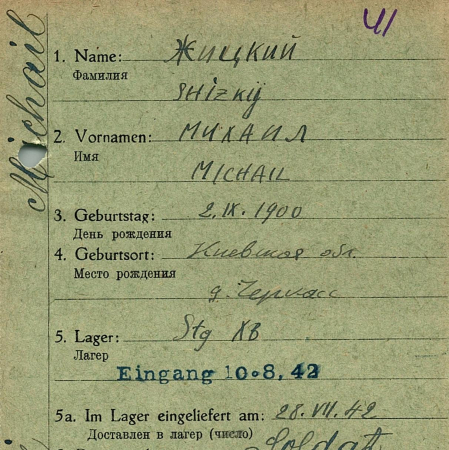 41
Michail
1. Name: Жицкий
Фамилия
SHIZKIJ
2. Vornamen: МИХАИЛ
Имя
MICHAIL
3. Geburtstag: 2.IX.1900
День рождения
4. Geburtsort: Киевская обл.
Место рождения
д. Черкасс
5. Lager: Stg XB
Лагер
Eingang 10.8.42
5a. Im Lager eingeliefert am: 28.VII.42
Доставлен в лагер (число)
Soldat